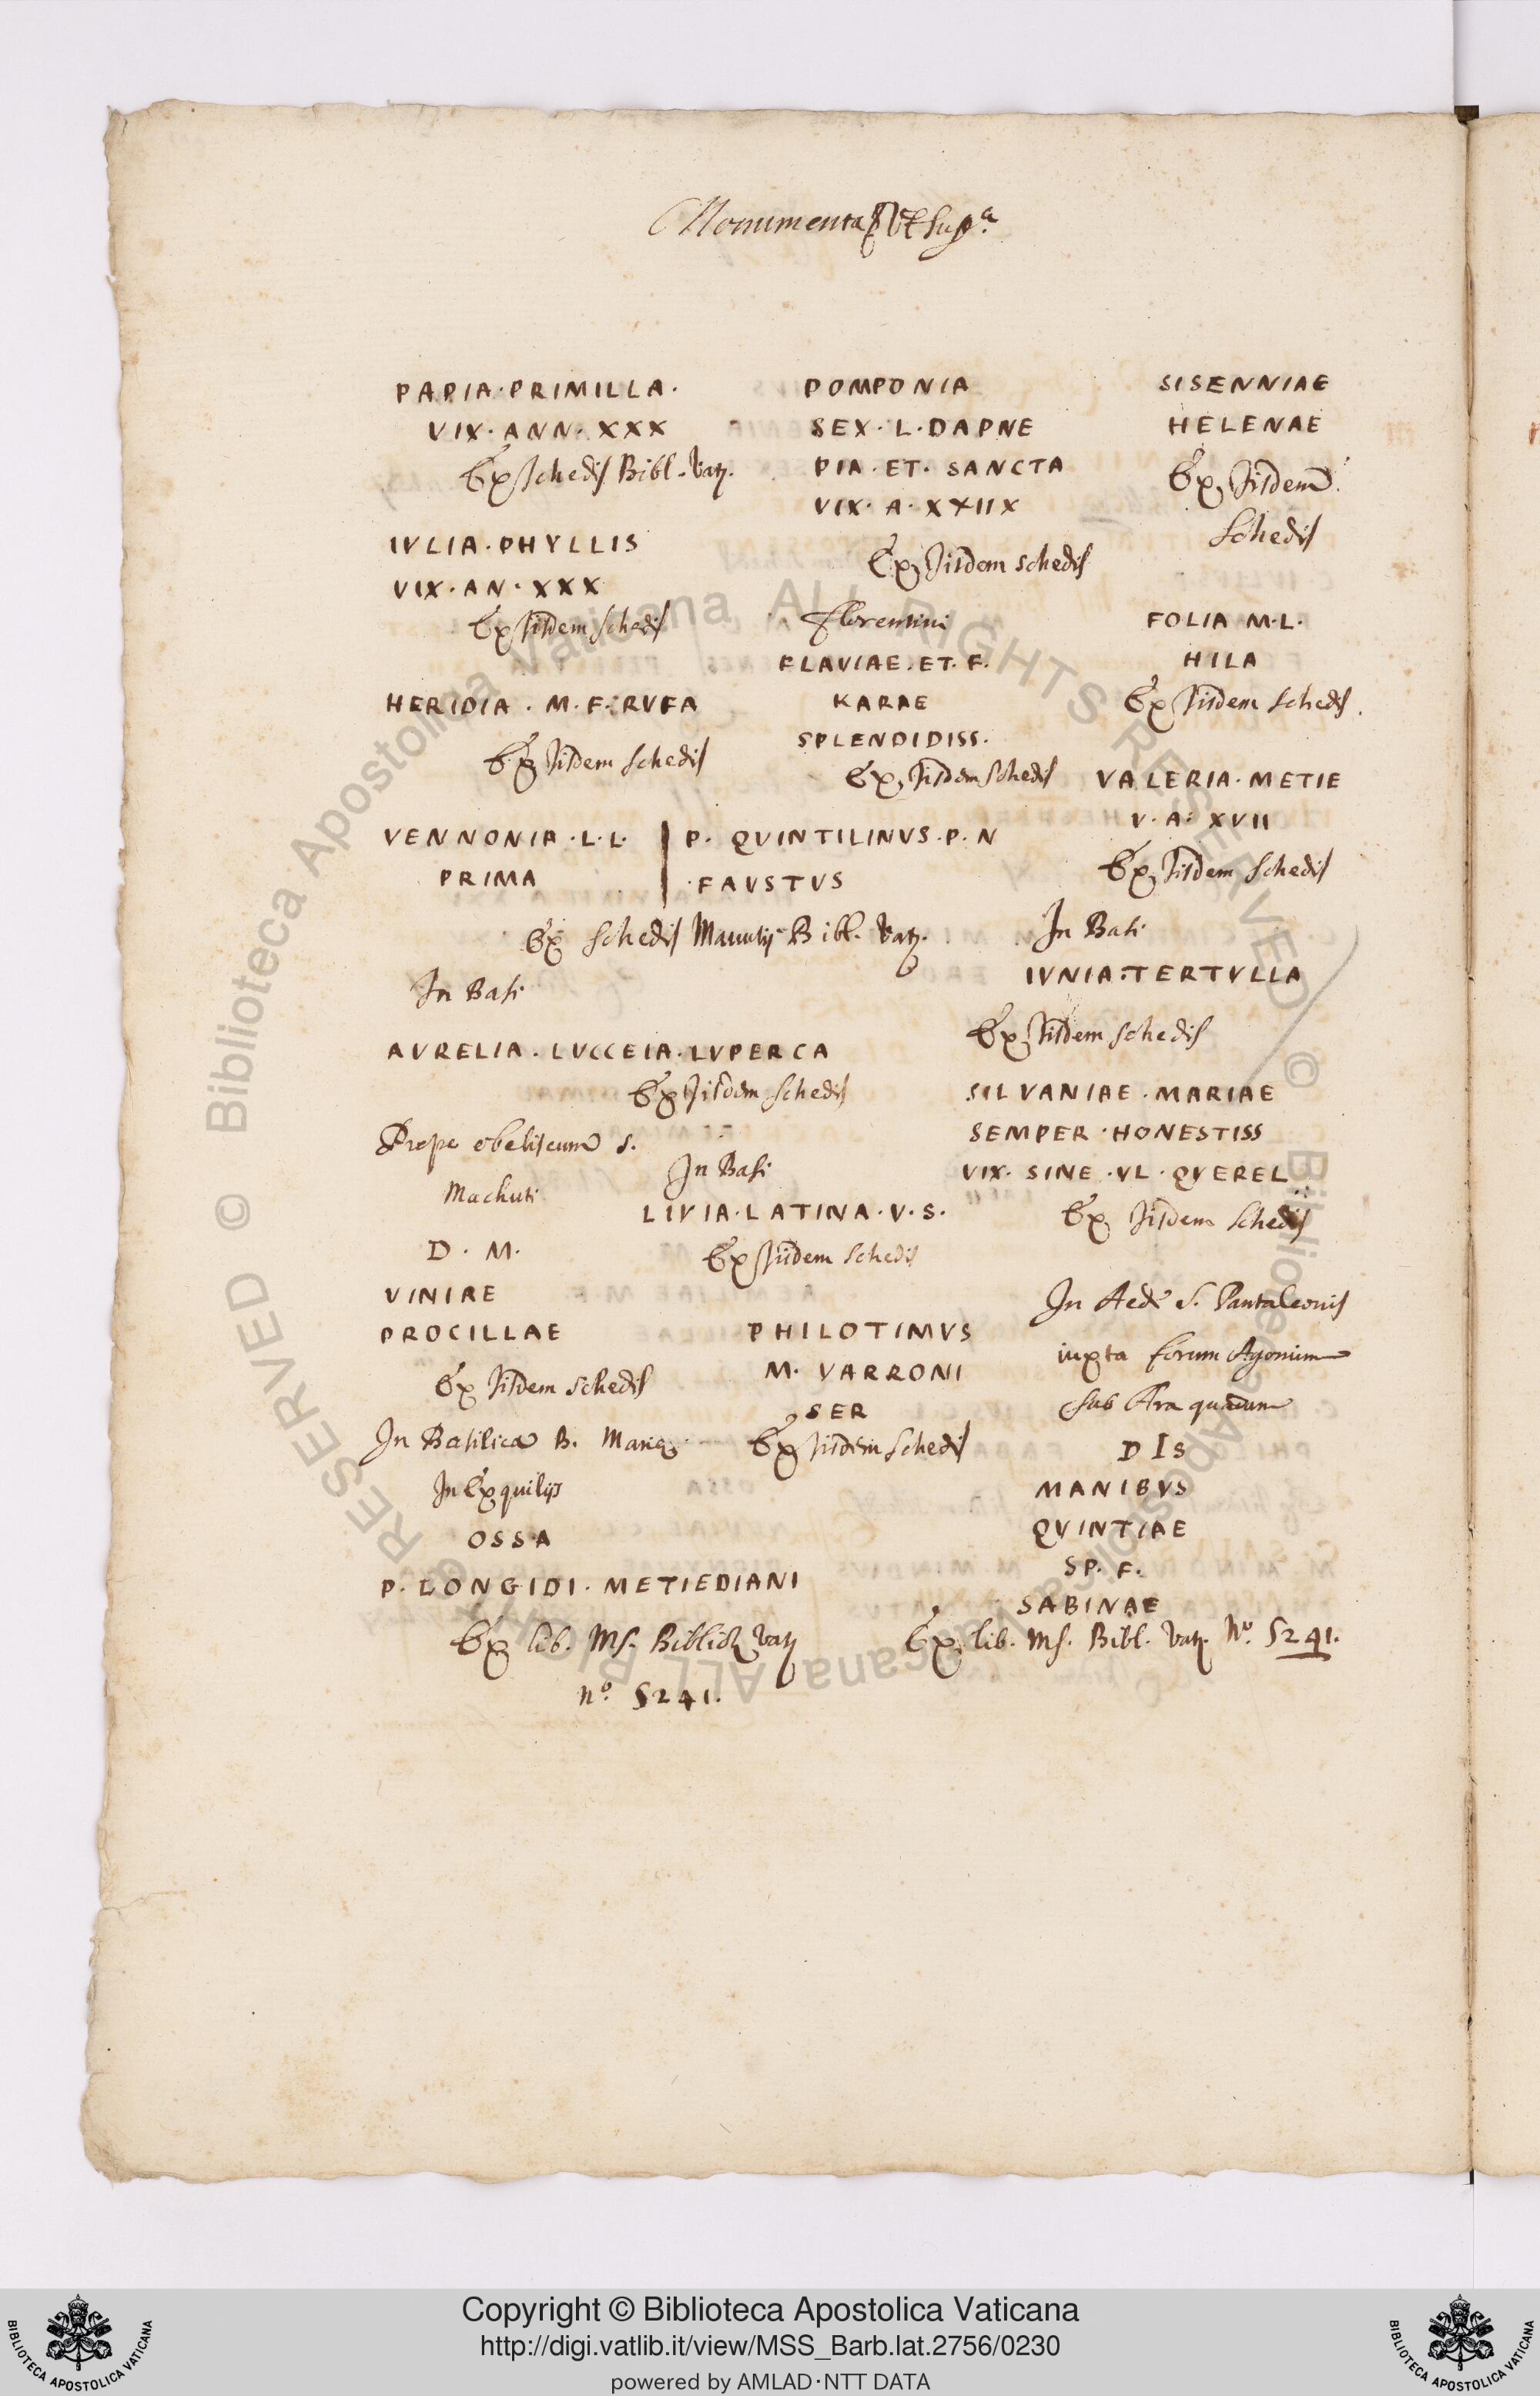 Monumenta Vt sup.a
PAPIA·PRIMILLA·
VIX·ANN·XXX
Ex schedis Bibl. Vat.
IVLIA·PHYLLIS
VIX·AN·XXX
Ex iisdem schedis
HERIDIA·M·F·RVFA
Ex iisdem schedis
POMPONIA
SEX·L·DAPNE
PIA·ET·SANCTA
VIX·A·XXIIX
Ex iisdem schedis
Florentini
FLAVIAE·ET·F·
KARAE
SPLENDIDISS·
Ex iisdem schedis
SISENNIAE
HELENAE
Ex iisdem
schedis
FOLIA M·L·
HILA
Ex iisdem schedis.
VALERIA·METIE
V·A·XVII
Ex iisdem schedis
VENNONIA·L·L· | P·QVINTILINVS·P·N
PRIMA | ·FAVSTVS
Ex schedis Manutij Bibl. Vat.
In Basi
AVRELIA·LVCCEIA·LVPERCA
Ex iisdem schedis
In Basi
IVNIA·TERTVLLA
Ex iisdem schedis
SILVANIAE·MARIAE
SEMPER·HONESTISS
VIX·SINE·VL·QVEREL·
Ex iisdem schedis
Prope obeliscum S.
Machuti
D·M·
VINIRE
PROCILLAE
Ex iisdem schedis
In Basi
LIVIA·LATINA·V·S·
Ex iisdem schedis
PHILOTIMVS
M·VARRONI
SER
Ex iisdem schedis
In Basilica B. Marię
In Exquilijs
OSSA
P·LONGIDI·METIEDIANI
Ex lib. Ms. Biblioth Vat
n.o 5241.
In Aede S. Pantaleonis
iuxta forum Agonium
sub Ara quadam
DIS
MANIBVS
QVINTIAE
SP·F·
SABINAE
Ex lib. Ms. Bibl. Vat. N.o 5241.
© Biblioteca Apostolica Vaticana ALL RIGHTS RESERVED © Biblioteca Apostolica Vaticana ALL RIGHTS RESERVED
Copyright © Biblioteca Apostolica Vaticana
http://digi.vatlib.it/view/MSS_Barb.lat.2756/0230
powered by AMLAD·NTT DATA
BIBLIOTECA APOSTOLICA VATICANA
BIBLIOTECA APOSTOLICA VATICANA